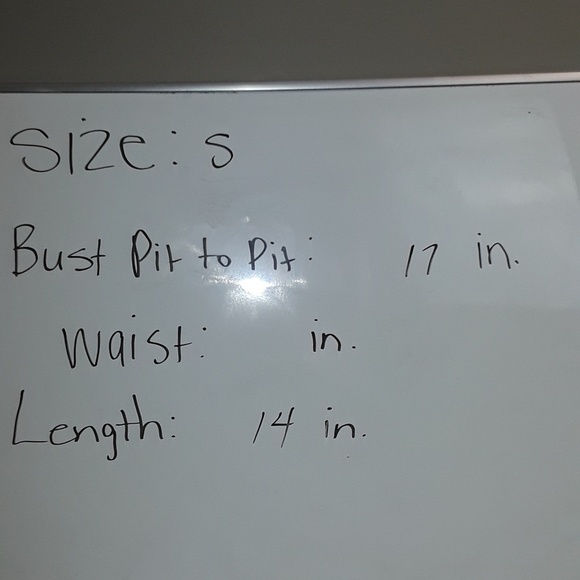 Size: S
Bust Pit to Pit: 17 in.
Waist: in.
Length: 14 in.